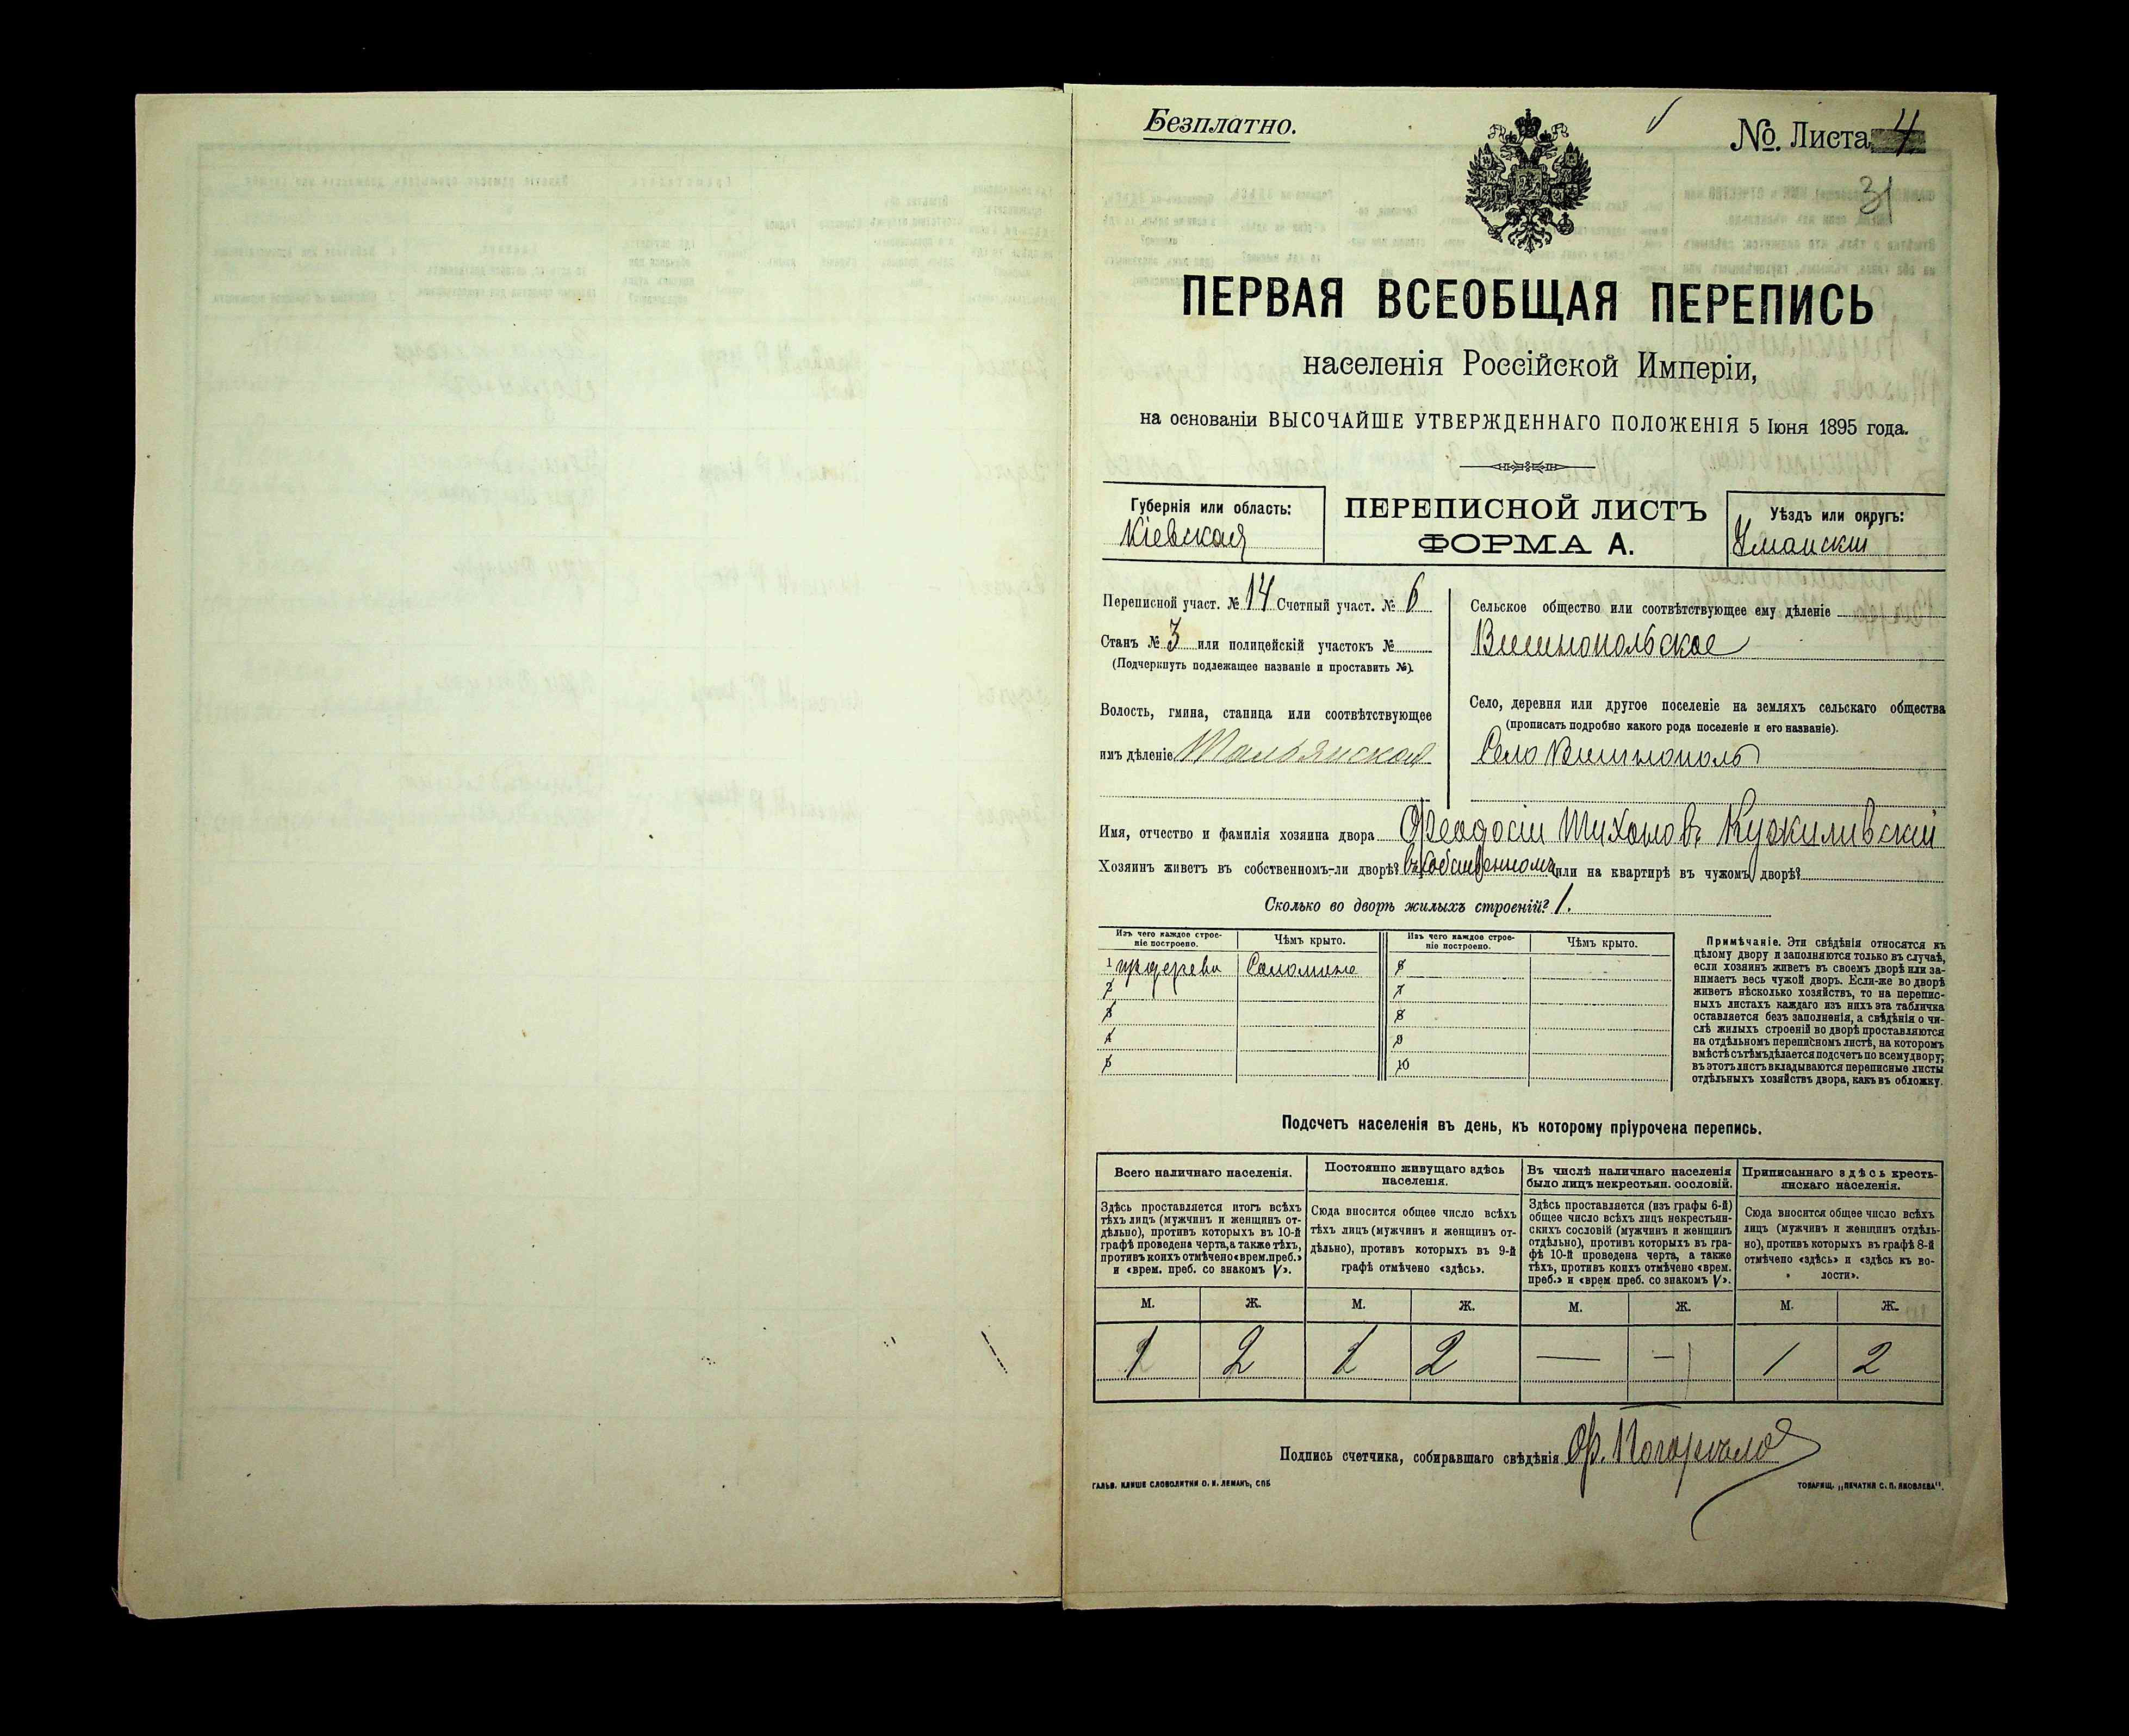 Безплатно.
№. Листа 4
31
ПЕРВАЯ ВСЕОБЩАЯ ПЕРЕПИСЬ
населенія Россійской Имперіи,
на основаніи ВЫСОЧАЙШЕ УТВЕРЖДЕННАГО ПОЛОЖЕНІЯ 5 Іюня 1895 года.
Губернія или область:
Кіевская
ПЕРЕПИСНОЙ ЛИСТЪ
ФОРМА А.
Уѣздъ или округъ:
Уманскій
Переписной участ. № 14 Счетный участ. № 6
Станъ № 3 или полицейскій участокъ №
(Подчеркнуть подлежащее названіе и проставить №).
Волость, гмина, станица или соотвѣтствующее
имъ дѣленіе Тальянская
Сельское общество или соотвѣтствующее ему дѣленіе
Вишнопольское
Село, деревня или другое поселеніе на земляхъ сельскаго общества
(прописать подробно какого рода поселеніе и его названіе).
Село Вишнополь
Имя, отчество и фамилія хозяина двора Феодосій Тихоновъ Кужиливскій
Хозяинъ живетъ въ собственномъ-ли дворѣ? въ собственномъ или на квартирѣ въ чужомъ дворѣ?
Сколько во дворѣ жилыхъ строеній? 1.
Изъ чего каждое строе-
ніе построено.
Чѣмъ крыто.
Изъ чего каждое строе-
ніе построено.
Чѣмъ крыто.
1 дерева Соломою 6
2 7
3 8
4 9
5 10
Примѣчаніе. Эти свѣдѣнія относятся къ
цѣлому двору и заполняются только въ случаѣ,
если хозяинъ живетъ въ своемъ дворѣ или за-
нимаетъ весь чужой дворъ. Если-же во дворѣ
живетъ нѣсколько хозяйствъ, то на перепис-
ныхъ листахъ каждаго изъ нихъ эта табличка
оставляется безъ заполненія, а свѣдѣнія о чи-
слѣ жилыхъ строеній во дворѣ проставляются
на отдѣльномъ переписномъ листѣ, на которомъ
вмѣстѣ съ тѣмъ дѣлается подсчетъ по всему двору;
въ этотъ листъ вкладываются переписные листы
отдѣльныхъ хозяйствъ двора, какъ въ обложку.
Подсчетъ населенія въ день, къ которому пріурочена перепись.
Всего наличнаго населенія.
Здѣсь проставляется итогъ всѣхъ
тѣхъ лицъ (мужчинъ и женщинъ от-
дѣльно), противъ которыхъ въ 10-й
графѣ проведена черта, а также тѣхъ,
противъ коихъ отмѣчено «врем. преб.»
и «врем. преб. со знакомъ V».
Постоянно живущаго здѣсь
населенія.
Сюда вносится общее число всѣхъ
тѣхъ лицъ (мужчинъ и женщинъ от-
дѣльно), противъ которыхъ въ 9-й
графѣ отмѣчено «здѣсь».
Въ числѣ наличнаго населенія
было лицъ некрестьян. сословій.
Здѣсь проставляется (изъ графы 6-й)
общее число всѣхъ лицъ некрестьян-
скихъ сословій (мужчинъ и женщинъ
отдѣльно), противъ которыхъ въ гра-
фѣ 10-й проведена черта, а также
тѣхъ, противъ коихъ отмѣчено «врем.
преб.» и «врем преб. со знакомъ V».
Приписаннаго здѣсь кресть-
янскаго населенія.
Сюда вносится общее число всѣхъ
лицъ (мужчинъ и женщинъ отдѣль-
но), противъ которыхъ въ графѣ 8-й
отмѣчено «здѣсь» и «здѣсь къ во-
лости».
М. Ж. М. Ж. М. Ж. М. Ж.
1 2 1 2 — — 1 2
Подпись счетчика, собиравшаго свѣдѣнія
ГАЛЬВ. КЛИШЕ СЛОВОЛИТНИ О. И. ЛЕМАНЪ, СПБ
ТОВАРИЩ. „ПЕЧАТНЯ С. П. ЯКОВЛЕВА".